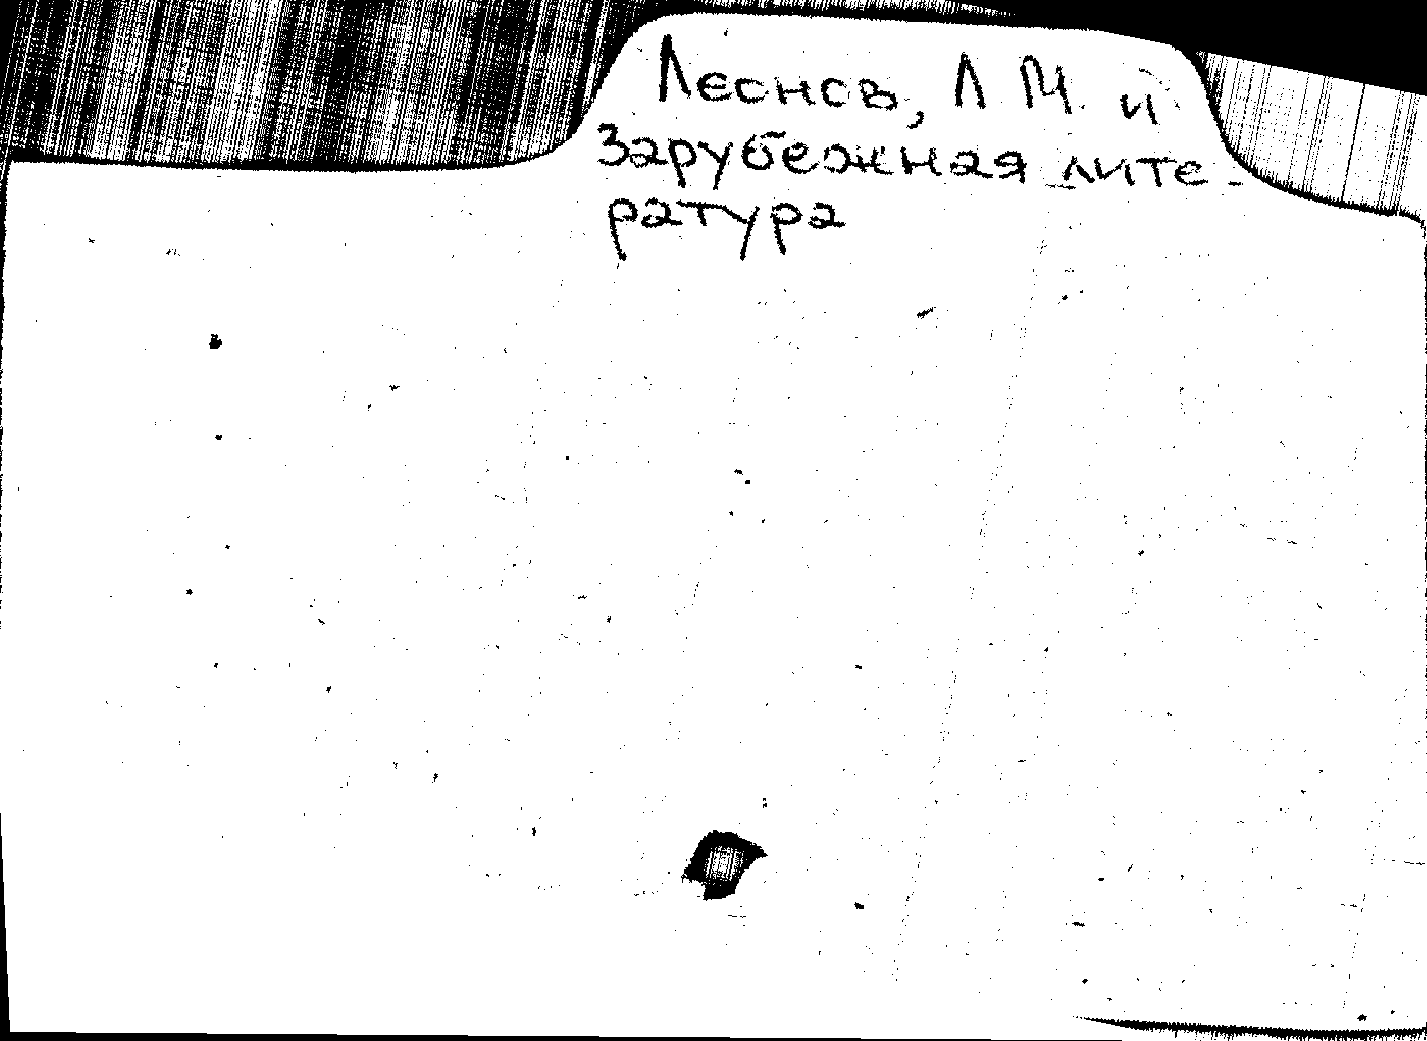 Леонов, Л М. и
Зарубежная лите-
ратура